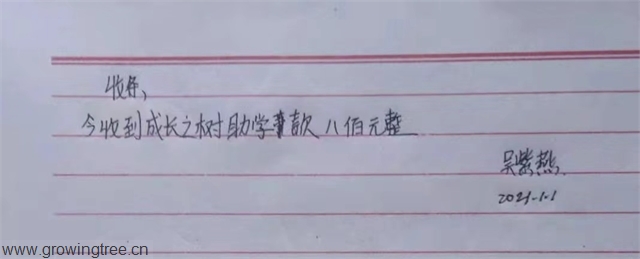 收条、
今收到成长之树助学款八佰元整
吴紫燕
2021.1.1
www.growingtree.cn